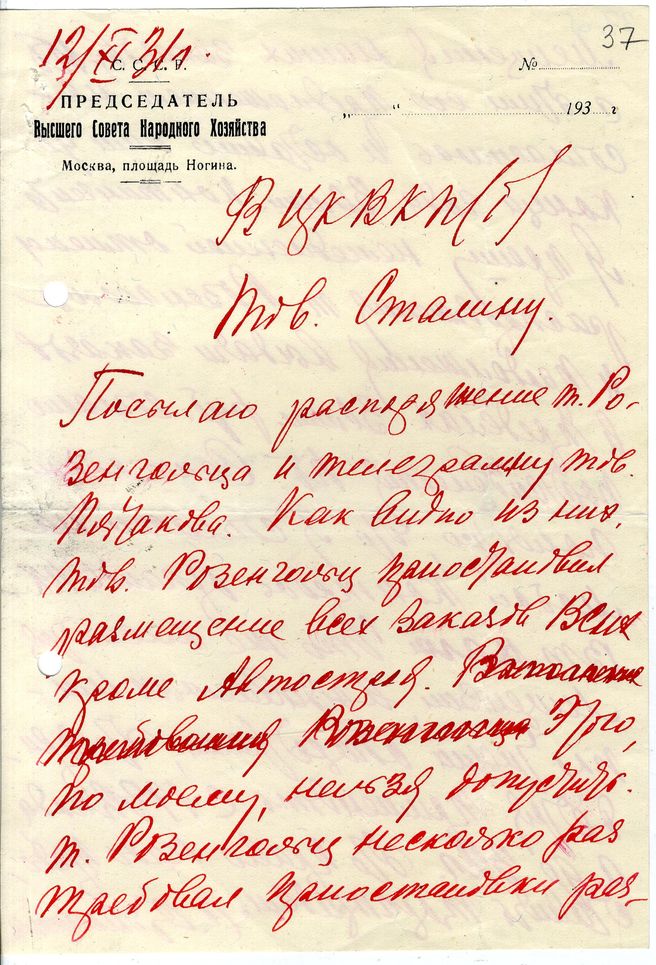 37
12/XI 31г.
С. С. С. Р.
№
ПРЕДСЕДАТЕЛЬ
Высшего Совета Народного Хозяйства
„ “ 193 г
Москва, площадь Ногина.
В ЦК ВКП(б)
Тов. Сталину.
Посылаю распоряжение т. Ро-
зенгольца и телеграмму тов.
Пятакова. Как видно из них,
тов. Розенгольц приостановил
размещение всех заказов ВСНХ
кроме Автостроя. Выполнение
требования Розенгольца Этого,
по моему, нельзя допустить.
т. Розенгольц несколько раз
требовал приостановки раз-